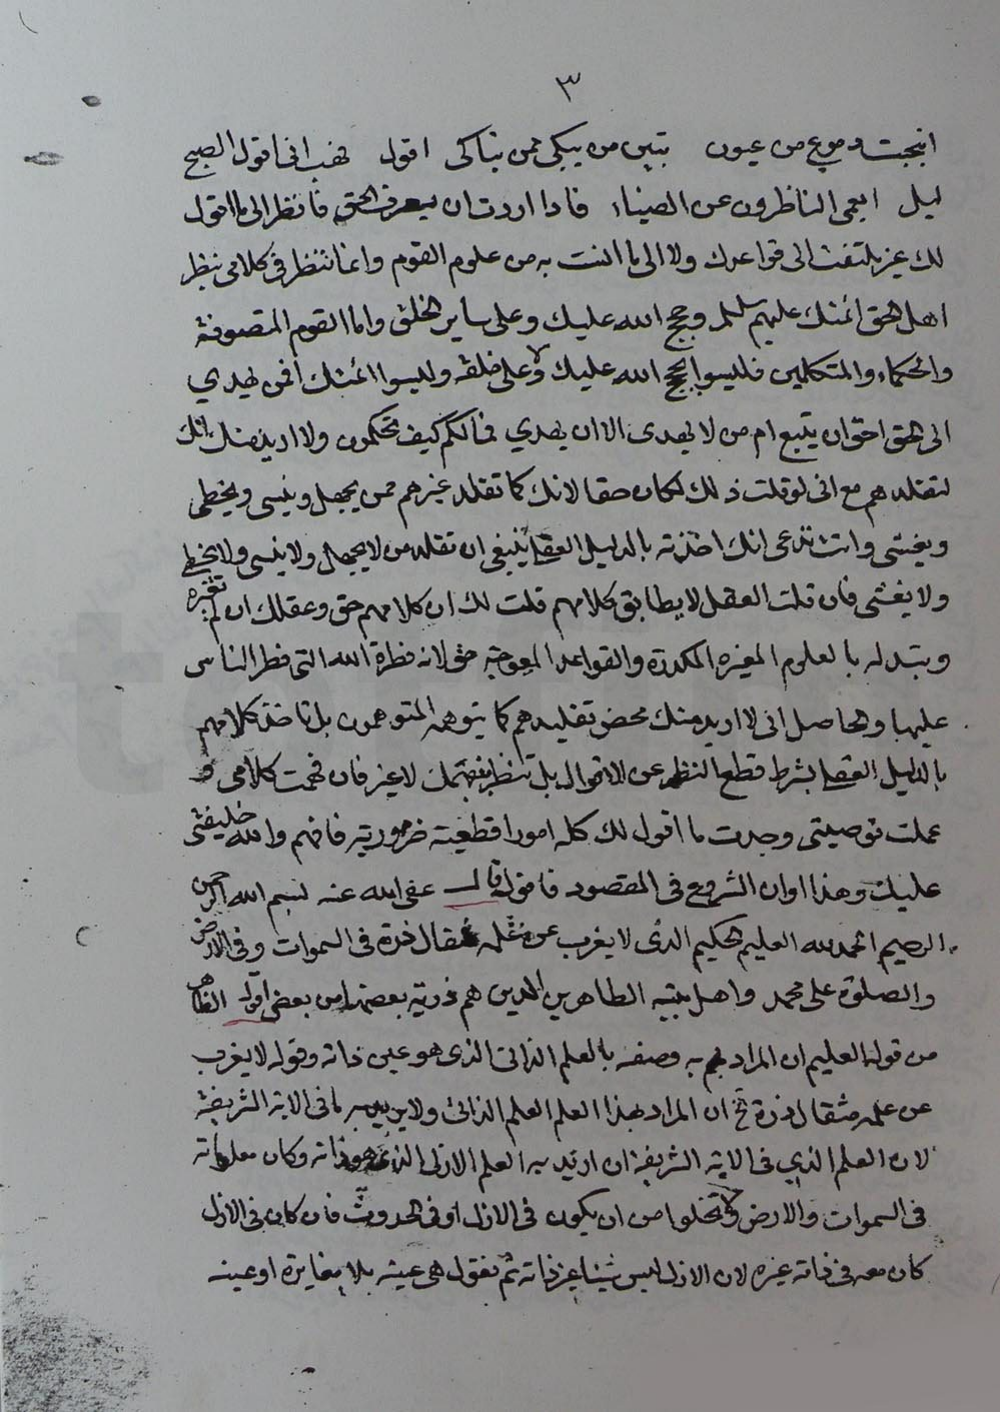 ٣
انبجست دموع من عيون تبين من يبكي ممن تباكى اقول فهب اني اقول الصبح
ليل ايعمى الناظرون عن الضياء فاذا اردت ان يعرف الحق فانظر الى ما اقول
لك غير ملتفت الى قواعدك ولا الى ما انست به من علوم القوم وانما تنظر في كلامي بنظر
اهل الحق ائمتك عليهم السلام وحجج الله عليك وعلى ساير الخلق واما القوم المتصوفة
والحكماء والمتكلمين فليسوا بحجج الله عليك ولا على خلقه وليسوا ائمتك افمن يهدي
الى الحق احق ان يتبع ام من لا يهدي الا ان يهدي فمالكم كيف تحكمون ولا اريد منك انك
تقلدهم مع اني لو قلت ذلك لكان حقا لانك كما تقلد غيرهم ممن يجهل وينسى ويخطى
ويغشى وانت تدعى انك اخذته بالدليل العقلي ينبغي ان تقلد من لا يجهل ولا ينسى ولا يخطى
ولا يغشى فان قلت العقل لا يطابق كلامهم قلت لك ان كلامهم حق وعقلك ان لم تغيره
وتبدله بالعلوم المغيره المكدرة والقواعد المعوجة حق لانه فطرة الله التي فطر الناس
عليها والحاصل اني لا اريد منك محض تقليدهم كما يتوهمه المتوهمون بل تاخذ كلامهم
بالدليل العقلي بشرط قطع النظر عن الاقوال بل تنظر بفهمك لا غير فان فهمت كلامي و
عملت بتوصيتي وجدت ما اقول لك كله امورا قطعية ضرورية فافهم والله خليفتي
عليك وهذا اوان الشروع في المقصود فاقول قال عفى الله عنه بسم الله الرحمن
الرحيم الحمد لله العليم الحكيم الذى لا يغرب عن علمه مثقال ذرة في السموات وفي الارض
والصلوة على محمد واهل بيته الطاهرين الذين هم ذرية بعضها من بعض اقول الظاهر
من قوله العليم ان المراد به وصفه بالعلم الذاتي الذى هو عين ذاته وقوله لا يغرب
عن علمه مثقال ذرة الخ ان المراد بهذا العلم العلم الذاتى ولا يريد به ما في الاية الشريفة
لان العلم الذي في الاية الشريفة ان اريد به العلم الازلى الذى هو ذاته وكان معلوماته
في السموات والارض فلا تخلوا من ان يكون في الازل او في الحدوث فان كان في الازل
كان معه في ذاته غيره لان الازل ليس شيئا غير ذاته ثم نقول هي عينه بلا مغايرة او عينه